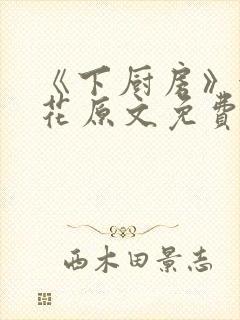 《下厨房》
花原文免費
西木田景志